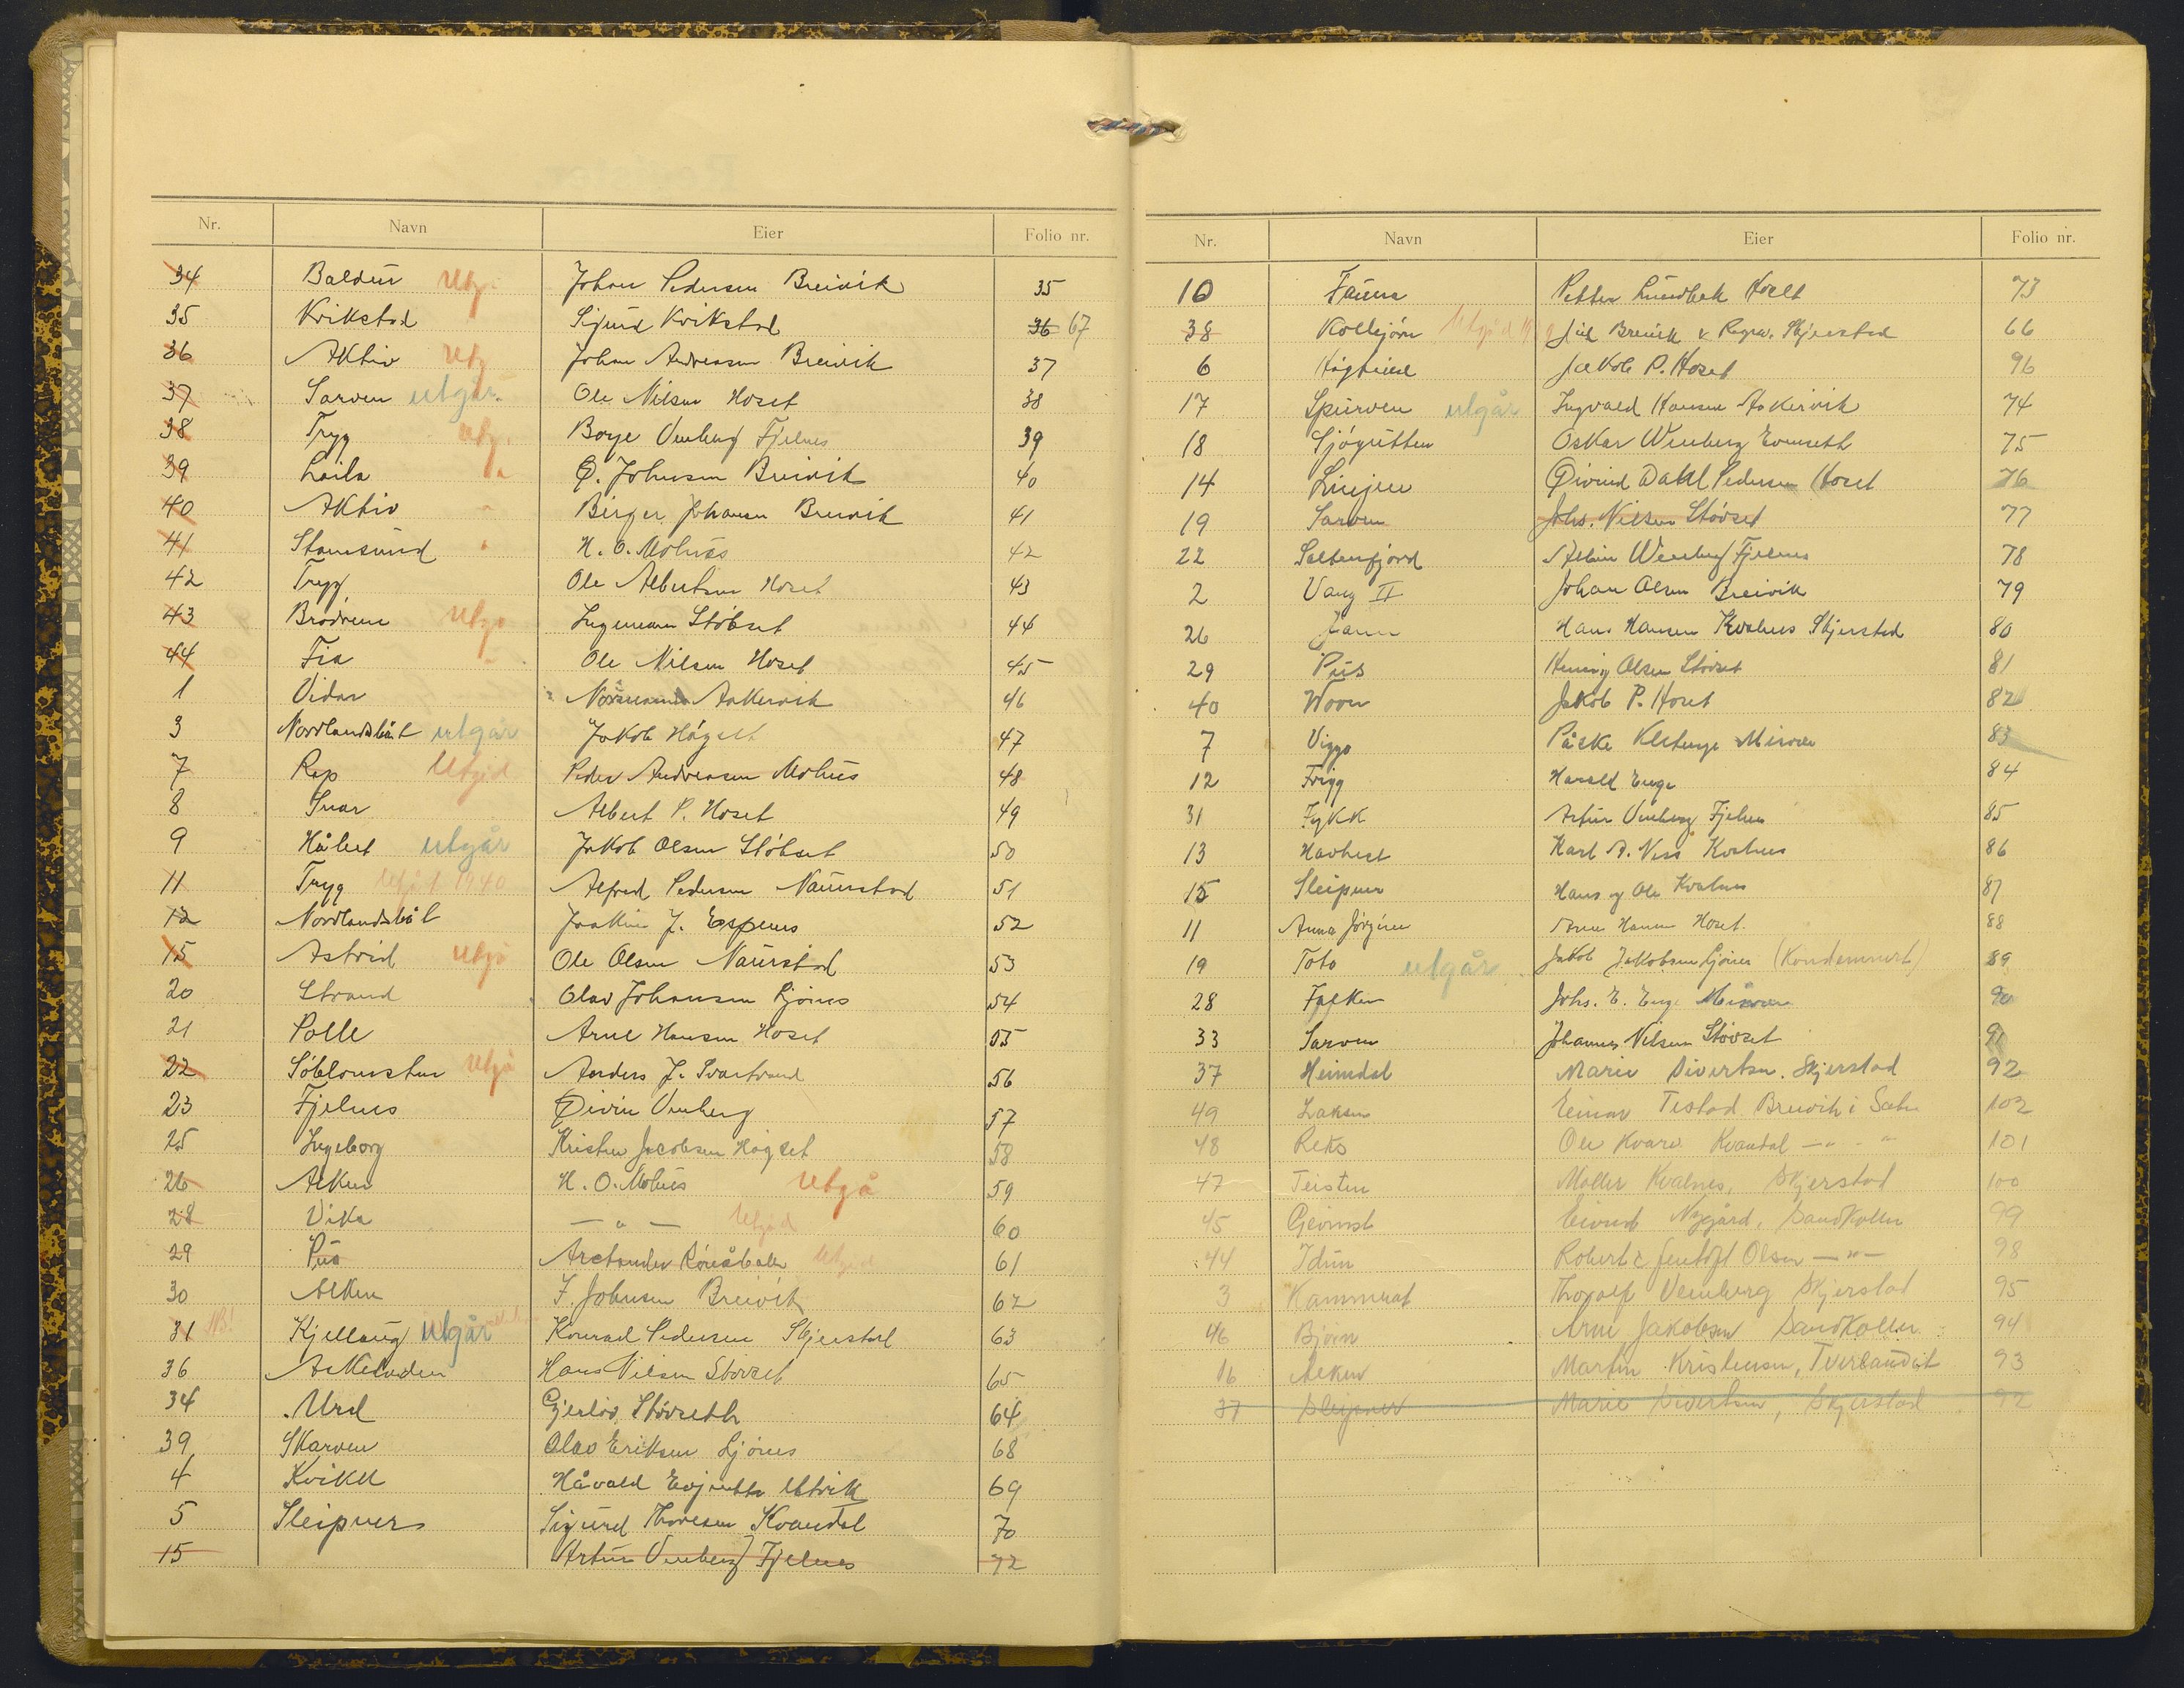 Nr. Navn Eier Folio nr.
34 Baldur Utg. Johan Pedersen Breivik 35
35 Kvikstad Sigurd Kvikstad 36 67
36 Aktiv Utg Johan Andreassen Breivik 37
37 Sarven utgår. Ole Nilsen Hoset 38
38 Tryg utg. Borge Venberg Fjelnes 39
39 Laila " O. Johnsen Breivik 40
40 Aktiv " Birger Johansen Breivik 41
41 Stamsund " H. O. Mohus 42
42 Tryg Ole Albertsen Hoset 43
43 Brødrene Utgå Ingemann Støbset 44
44 Fia " Ole Nilsen Hoset 45
1 Vidar Aakervik 46
3 Nordlandsbåt utgår Jakob Høgset 47
7 Rap Utgåd Peder Andreasen Mohus 48
8 Snar Albert P. Hoset 49
9 Håbet utgår Jakob Olsen Støbset 50
11 Tryg 1940 Alfred Pedersen Naurstad 51
12 Nordlandsbåt Joakim J. Espenes 52
15 Astrid Utgå Ole Olsen Naurstad 53
20 Strand Olav Johansen Ljønes 54
21 Polle Arne Hansen Hoset 55
22 Søblomsten Utgå Anders J. Svartvand 56
23 Fjelnes Øivin Venberg 57
25 Ingeborg Kristen Jacobsen Høgset 58
26 Alken H. O. Mohus Utgå 59
28 Vika — " — Utgåd 60
29 Pus Arctander 61
30 Alken J. Johnsen Breivik 62
31 NB! Kjellaug utgår Konrad Pedersen Skjerstad 63
36 Hans Nilsen Støvset 65
34 Urd Gjerløv Støvseth 64
39 Skarven Olav Eriksen Ljønes 68
4 Kvikk Håvald Evjenth Utvik 69
5 Sleipner Sigurd Thoresen Kvandal 70
15 Artur Venberg Fjelnes 72
Nr. Navn Eier Folio nr.
10 Fauna Petter Lundbek Hoset 73
38 Kollsjøen Utgåd Breivik & Ragnv. Skjerstad 66
6 Jakob P. Hoset 96
17 Spurven utgår Ingvald Hansen Aakervik 74
18 Sjøgutten Oskar Wenberg Evenseth 75
14 Linjen Øivind Dahl Pedersen Hoset 76
19 Sarven Johs. Nilsen Støvset 77
22 Saltenfjord Albin Wenberg Fjelnes 78
2 Vang II Johan Olsen Breivik 79
26 Hans Hansen Kvalnes Skjerstad 80
29 Pus Henrig Olsen Støvset 81
40 Jakob P. Hoset 82
7 Viggo Påske Kletunge Misvær 83
12 Frigg Harald Enge 84
31 Fykk Artur Venberg Fjelnes 85
13 Havhest Karl A. Ness Kvalnes 86
15 Sleipner Hans og Ole Kvalnes 87
11 Anna Jørgine Arne Hansen Hoset. 88
19 Toto utgår Jakob Jakobsen Ljønes (Kondemnert) 89
28 Falken Johs. E. Enge Misvær 90
33 Sarven Johannes Nilsen Støvset 91
37 Heimdal Marie Sivertsen. Skjerstad 92
49 Laksen Einar Testad Breivik i Salten 102
48 Reks Ole Kvarv Kvandal — " — " 101
47 Teisten Møller Kvalnes, Skjerstad 100
45 Gevinst Eivind Nygård, Sandkollen 99
44 Idun Robert & Jentoft Olsen — " — 98
3 Kammerat Thoralf Venberg Skjerstad 95
46 Bjørn Arne Jakobsen Sandkollen 94
16 Alken Martin Kristensen, Tverlandet 93
37 Sleipner Marie Sivertsen, Skjerstad 92